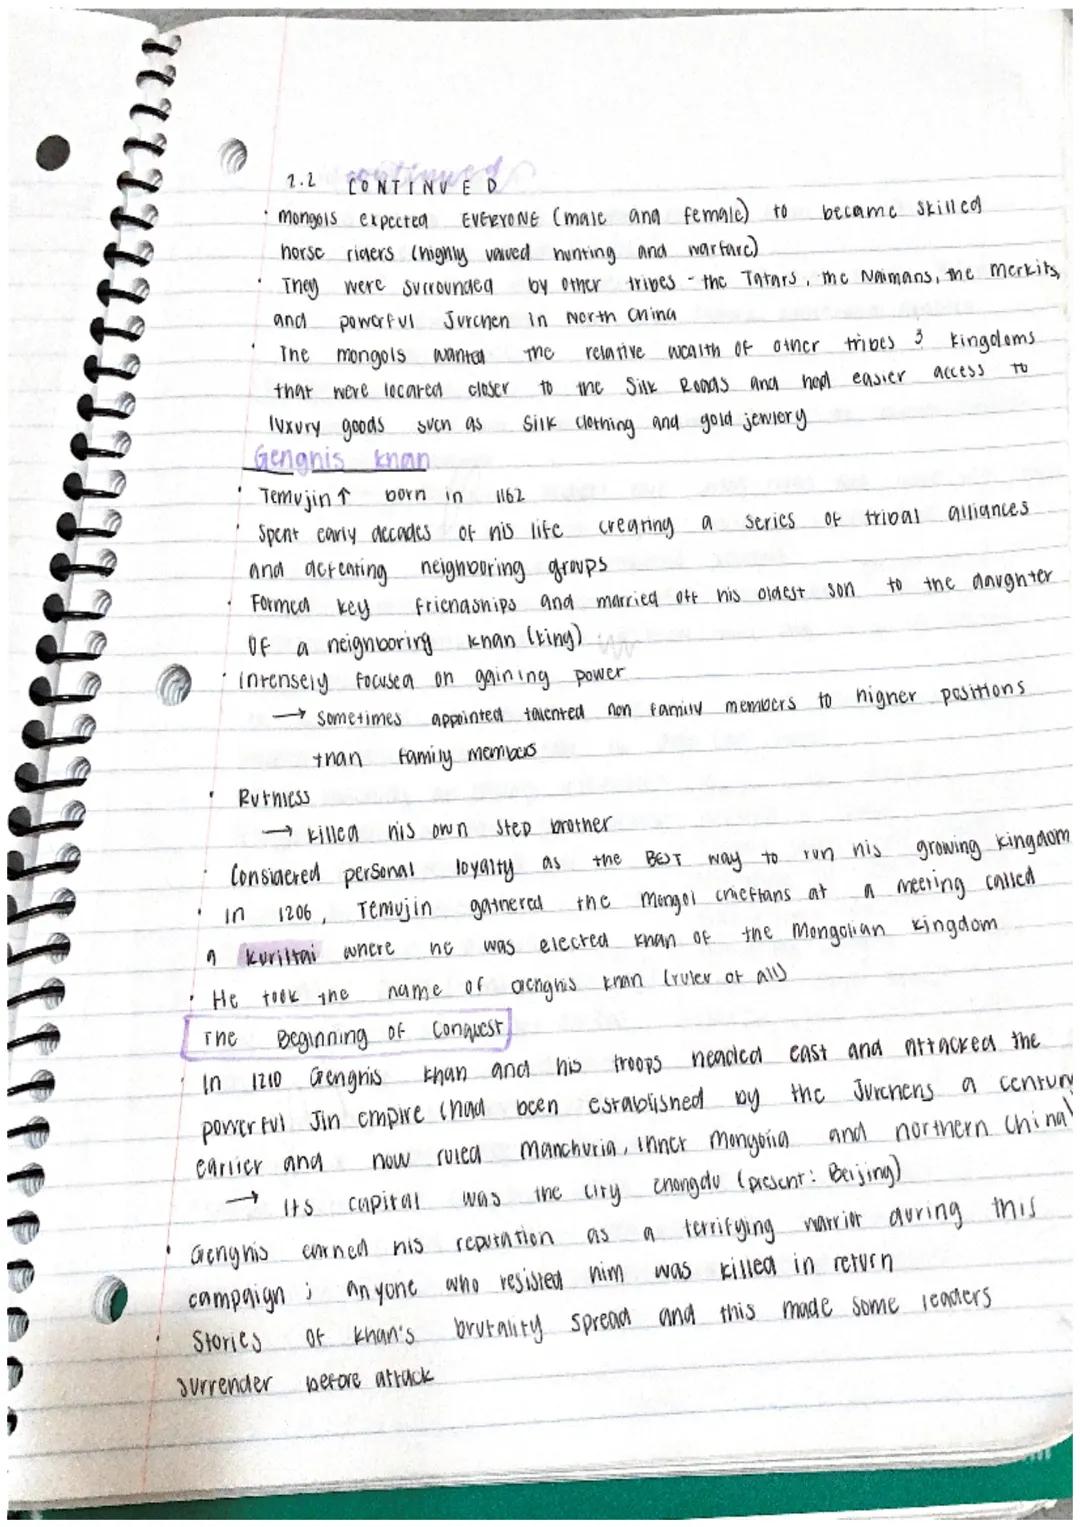 2.2 continued CONTINUED
· mongols expected EVERYONE (male and female) to became skilled
horse riders (highly valued hunting and warfare)
· They were surrounded by other tribes - the Tatars, the Naimans, the Merkits,
and powerful Jurchen in North China
· The mongols wanted the relative wealth of other tribes & kingdoms
that were located closer to the Silk Roads and had easier access to
luxury goods such as silk clothing and gold jewlery
Genghis khan
· Temujin ↑ born in 1162
· Spent early decades of his life creating a series of tribal alliances
and defeating neighboring groups
· Formed key friendships and married off his oldest son to the daughter
of a neighboring khan (king)
· Intensely focused on gaining power
→ sometimes appointed talented non family members to higher positions
than family members
· Ruthless
→ killed his own step brother
· Considered personal loyalty as the BEST way to run his growing kingdom
· In 1206, Temujin gathered the Mongol chieftans at a meeting called
a kuriltai where he was elected khan of the Mongolian kingdom
· He took the name of Genghis khan (ruler of all)
The Beginning of Conquest
· In 1210 Genghis khan and his troops headed east and attacked the
powerful Jin empire (had been established by the Jurchens a century
earlier and now ruled Manchuria, inner mongolia and northern China)
→ Its capital was the city Zhongdu (present: Beijing)
· Genghis earned his reputation as a terrifying warrior during this
campaign ; anyone who resisted him was killed in return
· Stories of khan's brutality spread and this made some leaders
surrender before attack